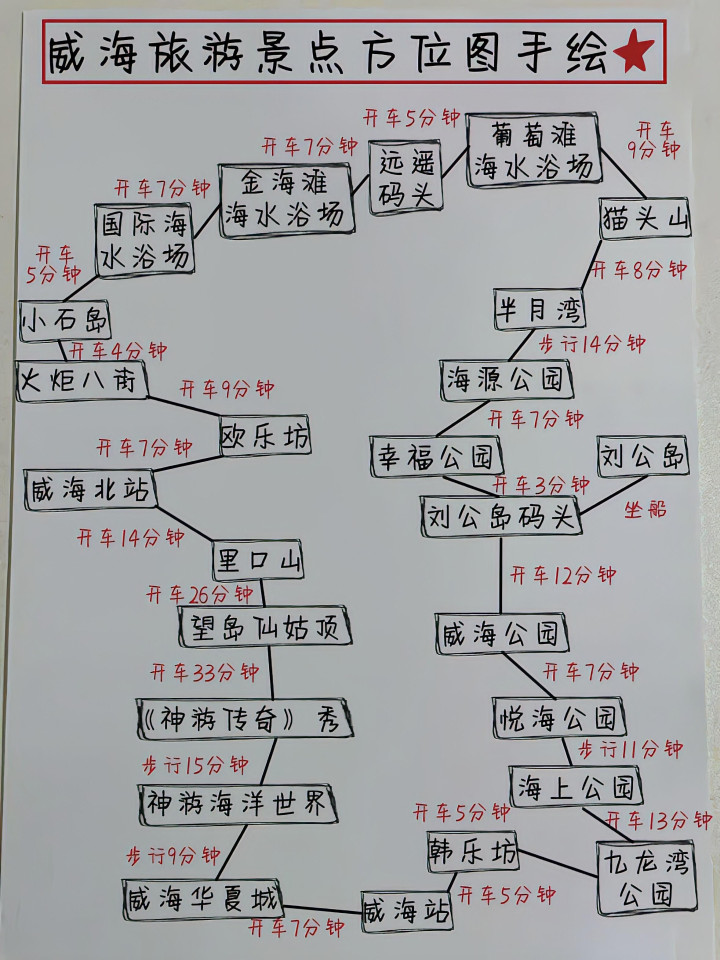 威海旅游景点方位图手绘
开车5分钟
葡萄滩
海水浴场
开车
9分钟
开车7分钟
远遥
码头
金海滩
海水浴场
开车7分钟
国际海
水浴场
猫头山
开车
5分钟
开车8分钟
小石岛
半月湾
开车4分钟
步行14分钟
火炬八街
海源公园
开车9分钟
开车7分钟
欧乐坊
开车7分钟
幸福公园
刘公岛
威海北站
开车3分钟
刘公岛码头
坐船
开车14分钟
里口山
开车12分钟
开车26分钟
望岛仙姑顶
威海公园
开车33分钟
开车7分钟
《神游传奇》秀
悦海公园
步行15分钟
步行11分钟
神游海洋世界
海上公园
开车5分钟
开车13分钟
步行9分钟
韩乐坊
九龙湾
公园
威海华夏城
开车5分钟
威海站
开车7分钟